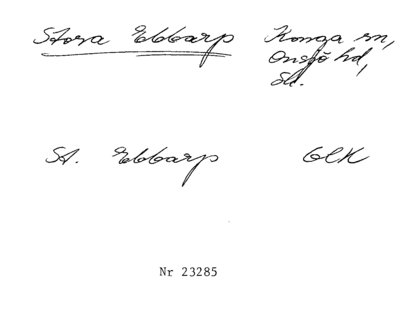 Stora Ebbarp Konga sn,
Onsjö hd,
Sk.
St. Ebbarp GEK
Nr 23285